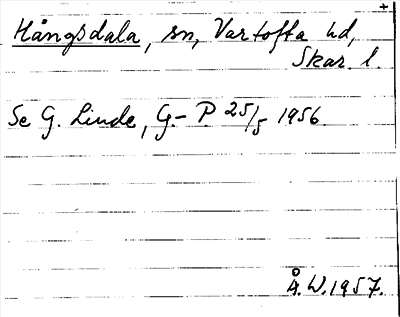 +
Hångsdala, sn, Vartofta hd,
Skar. l.
Se G. Linde, G.-P. 25/5 1956.
Å.W.1957.